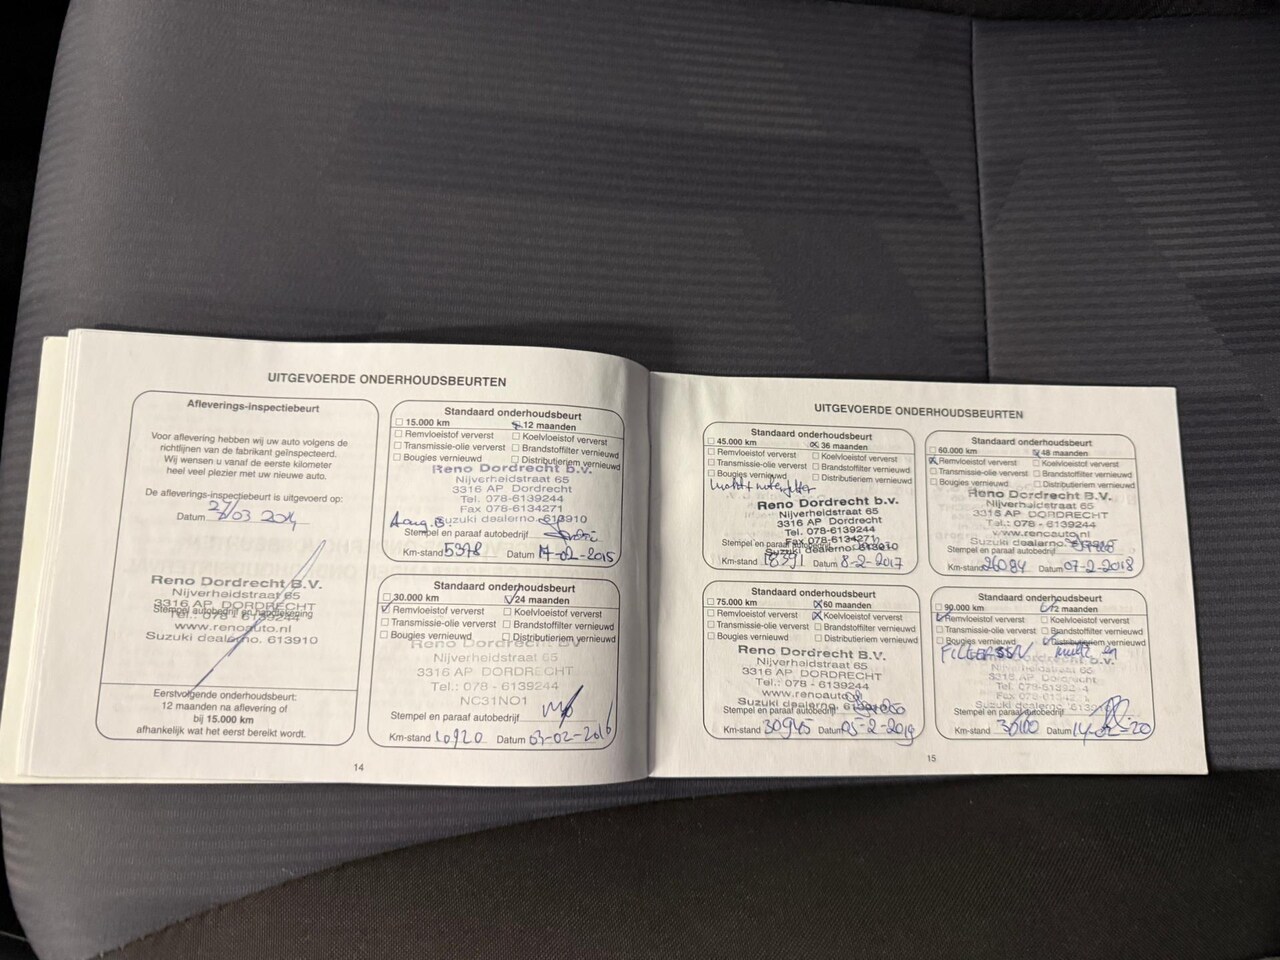 UITGEVOERDE ONDERHOUDSBEURTEN
Afleverings-inspectiebeurt
Voor aflevering hebben wij uw auto volgens de
richtlijnen van de fabrikant geïnspecteerd.
Wij wensen u vanaf de eerste kilometer
heel veel plezier met uw nieuwe auto.
De afleverings-inspectiebeurt is uitgevoerd op:
Datum 27/03 2014
Reno Dordrecht B.V.
Nijverheidstraat 65
3316 AP DORDRECHT
Stempel autobedrijf en handtekening
Tel.: 078 - 6139244
www.renoauto.nl
Suzuki dealerno. 613910
Eerstvolgende onderhoudsbeurt:
12 maanden na aflevering of
bij 15.000 km
afhankelijk wat het eerst bereikt wordt.
Standaard onderhoudsbeurt
15.000 km 12 maanden
Remvloeistof ververst Koelvloeistof ververst
Transmissie-olie ververst Brandstoffilter vernieuwd
Bougies vernieuwd Distributieriem vernieuwd
Reno Dordrecht b.v.
Nijverheidstraat 65
3316 AP Dordrecht
Tel. 078-6139244
Fax 078-6134271
Suzuki dealerno. 613910
Stempel en paraaf autobedrijf
Km-stand 5378 Datum 17-02-2015
Standaard onderhoudsbeurt
30.000 km 24 maanden
Remvloeistof ververst Koelvloeistof ververst
Transmissie-olie ververst Brandstoffilter vernieuwd
Bougies vernieuwd Distributieriem vernieuwd
Reno Dordrecht BV
Nijverheidstraat 65
3316 AP DORDRECHT
Tel.: 078 - 6139244
NC31NO1
Stempel en paraaf autobedrijf
Km-stand 10920 Datum 03-02-2016
14
UITGEVOERDE ONDERHOUDSBEURTEN
Standaard onderhoudsbeurt
45.000 km 36 maanden
Remvloeistof ververst Koelvloeistof ververst
Transmissie-olie ververst Brandstoffilter vernieuwd
Bougies vernieuwd Distributieriem vernieuwd
Reno Dordrecht b.v.
Nijverheidstraat 65
3316 AP Dordrecht
Tel. 078-6139244
Fax 078-6134271
Stempel en paraaf autobedrijf
Suzuki dealerno. 613910
Km-stand 18391 Datum 8-2-2017
Standaard onderhoudsbeurt
60.000 km 48 maanden
Remvloeistof ververst Koelvloeistof ververst
Transmissie-olie ververst Brandstoffilter vernieuwd
Bougies vernieuwd Distributieriem vernieuwd
Reno Dordrecht B.V.
Nijverheidstraat 65
3316 AP DORDRECHT
Tel.: 078 - 6139244
www.renoauto.nl
Suzuki dealerno.
Stempel en paraaf autobedrijf
Km-stand 26084 Datum 07-2-2018
Standaard onderhoudsbeurt
75.000 km 60 maanden
Remvloeistof ververst Koelvloeistof ververst
Transmissie-olie ververst Brandstoffilter vernieuwd
Bougies vernieuwd Distributieriem vernieuwd
Reno Dordrecht B.V.
Nijverheidstraat 65
3316 AP DORDRECHT
Tel.: 078 - 6139244
www.renoauto
Suzuki dealerno.
Stempel en paraaf autobedrijf
Km-stand 30945 Datum 05-2-2019
Standaard onderhoudsbeurt
90.000 km 72 maanden
Remvloeistof ververst Koelvloeistof ververst
Transmissie-olie ververst Brandstoffilter vernieuwd
Bougies vernieuwd Distributieriem vernieuwd
Stempel en paraaf autobedrijf
Km-stand Datum 14-02-20
15